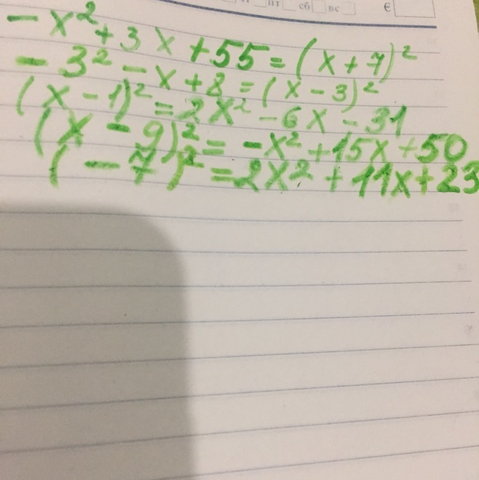 пт сб вс €
-x²+3x+55=(x+7)²
-3²-x+8=(x-3)²
(x-1)²=2x²-6x-31
(x-9)²=-x²+15x+50
(-7)²=2x²+11x+23